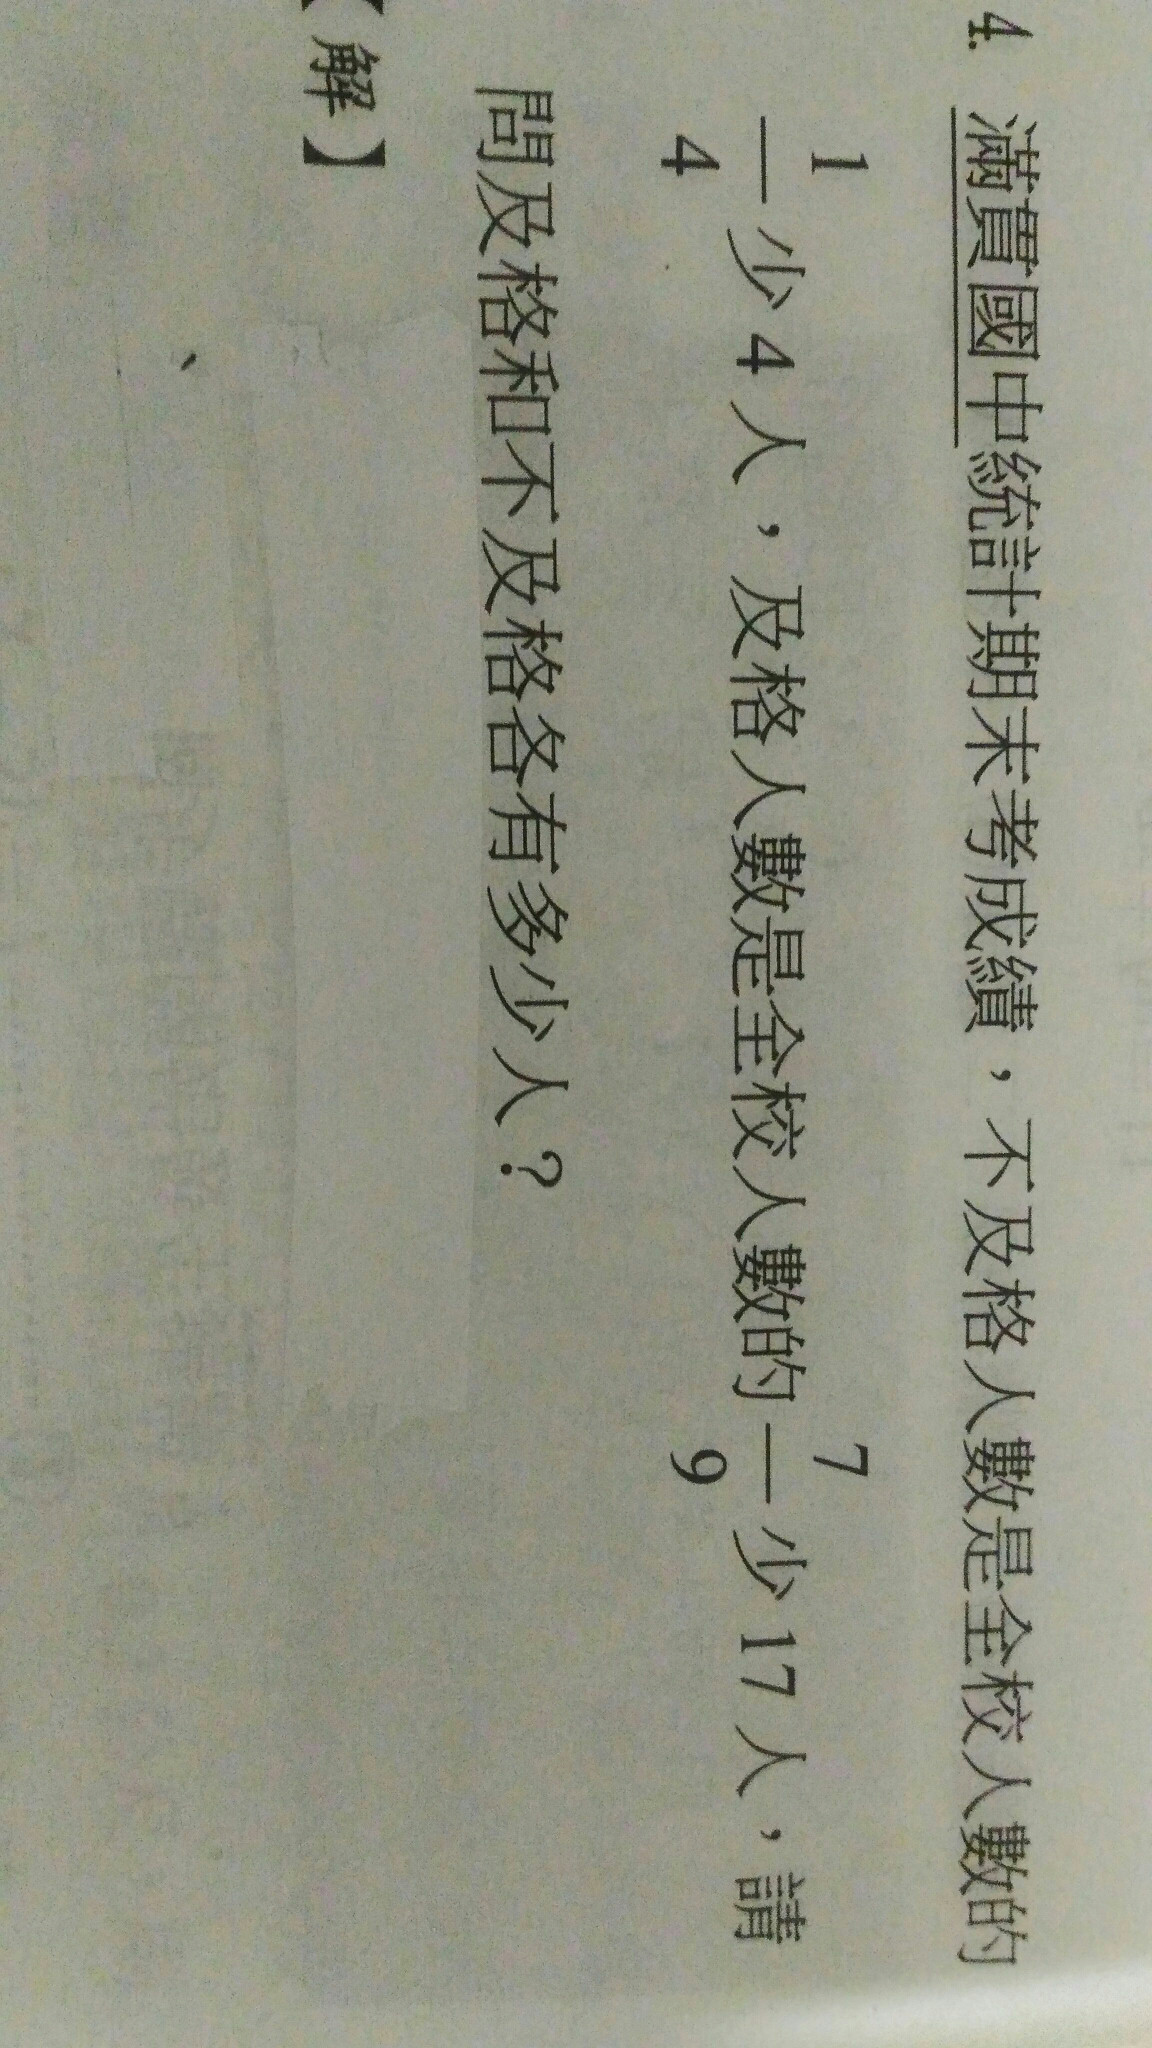 4. 滿貫國中統計期末考成績，不及格人數是全校人數的
1/4 少 4 人，及格人數是全校人數的 7/9 少 17 人，請
問及格和不及格各有多少人？
【解】